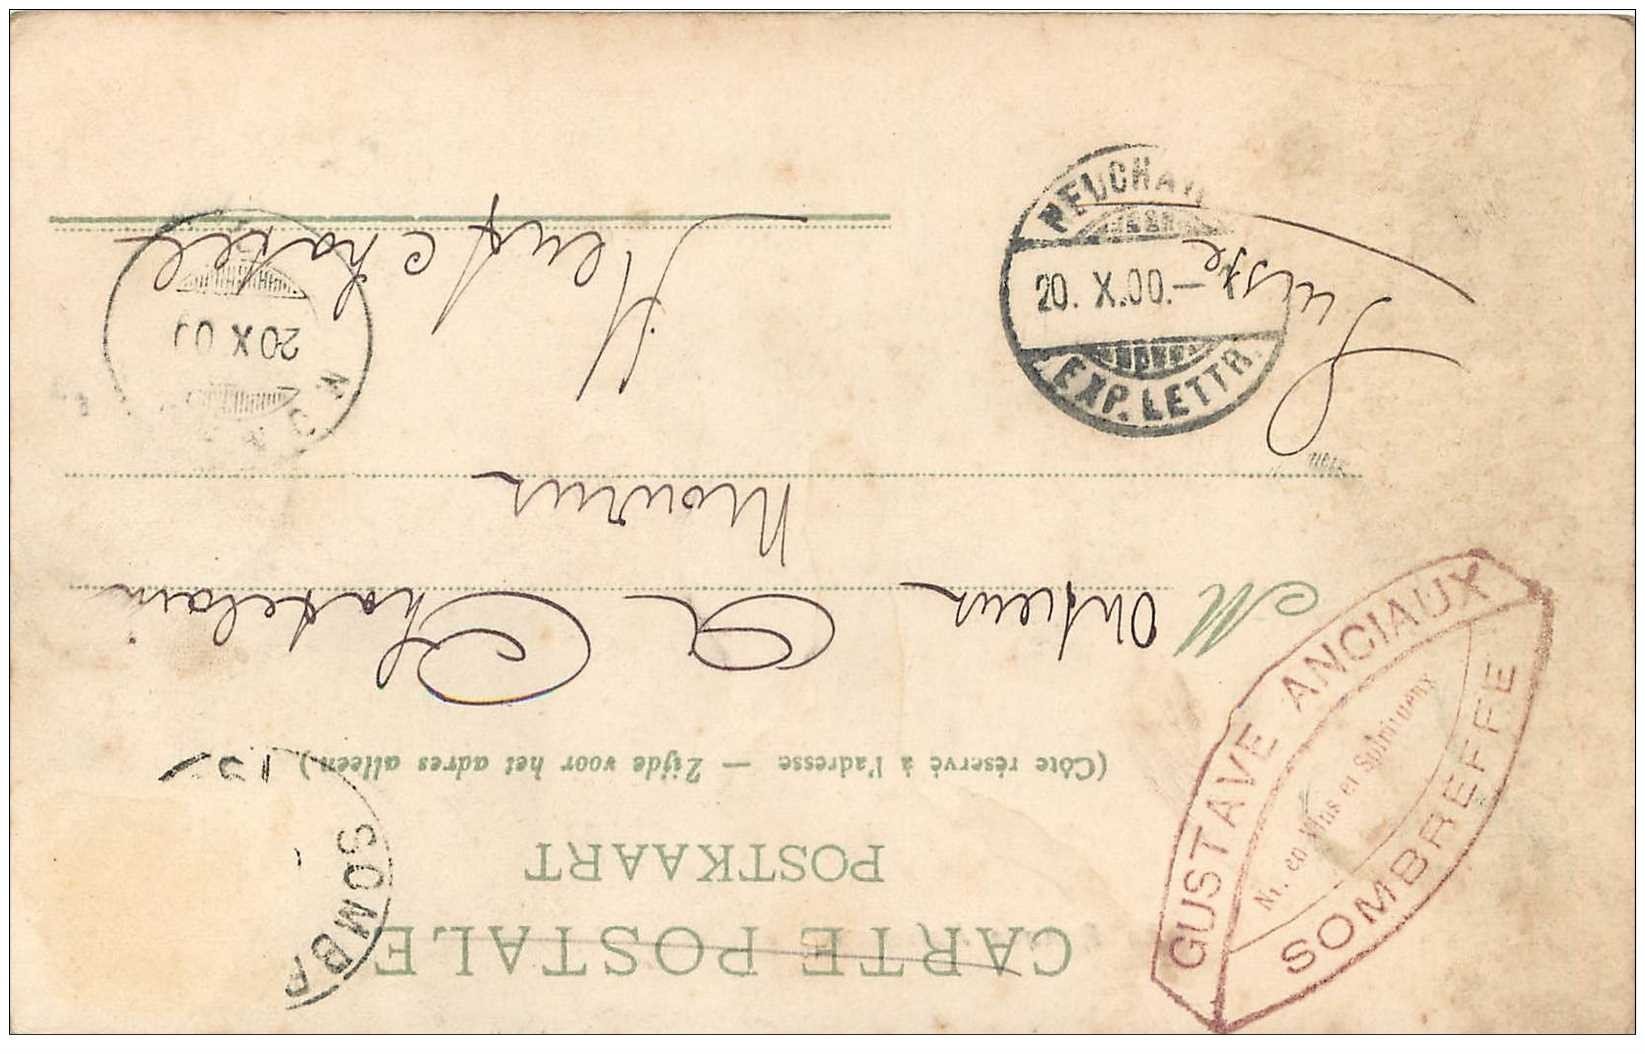 CARTE POSTALE
POSTKAART
(Côté réservé à l'adresse — Zijde voor het adres alleen)
Monsieur A Chatelain
Mourus
Neufchatel
Suisse
SOMBR
NEUCHAT
20. X.00.—
EXP. LETTR.
20 X 0
GUSTAVE ANCIAUX
Nt. en Vins et Spiritueux
SOMBREFFE